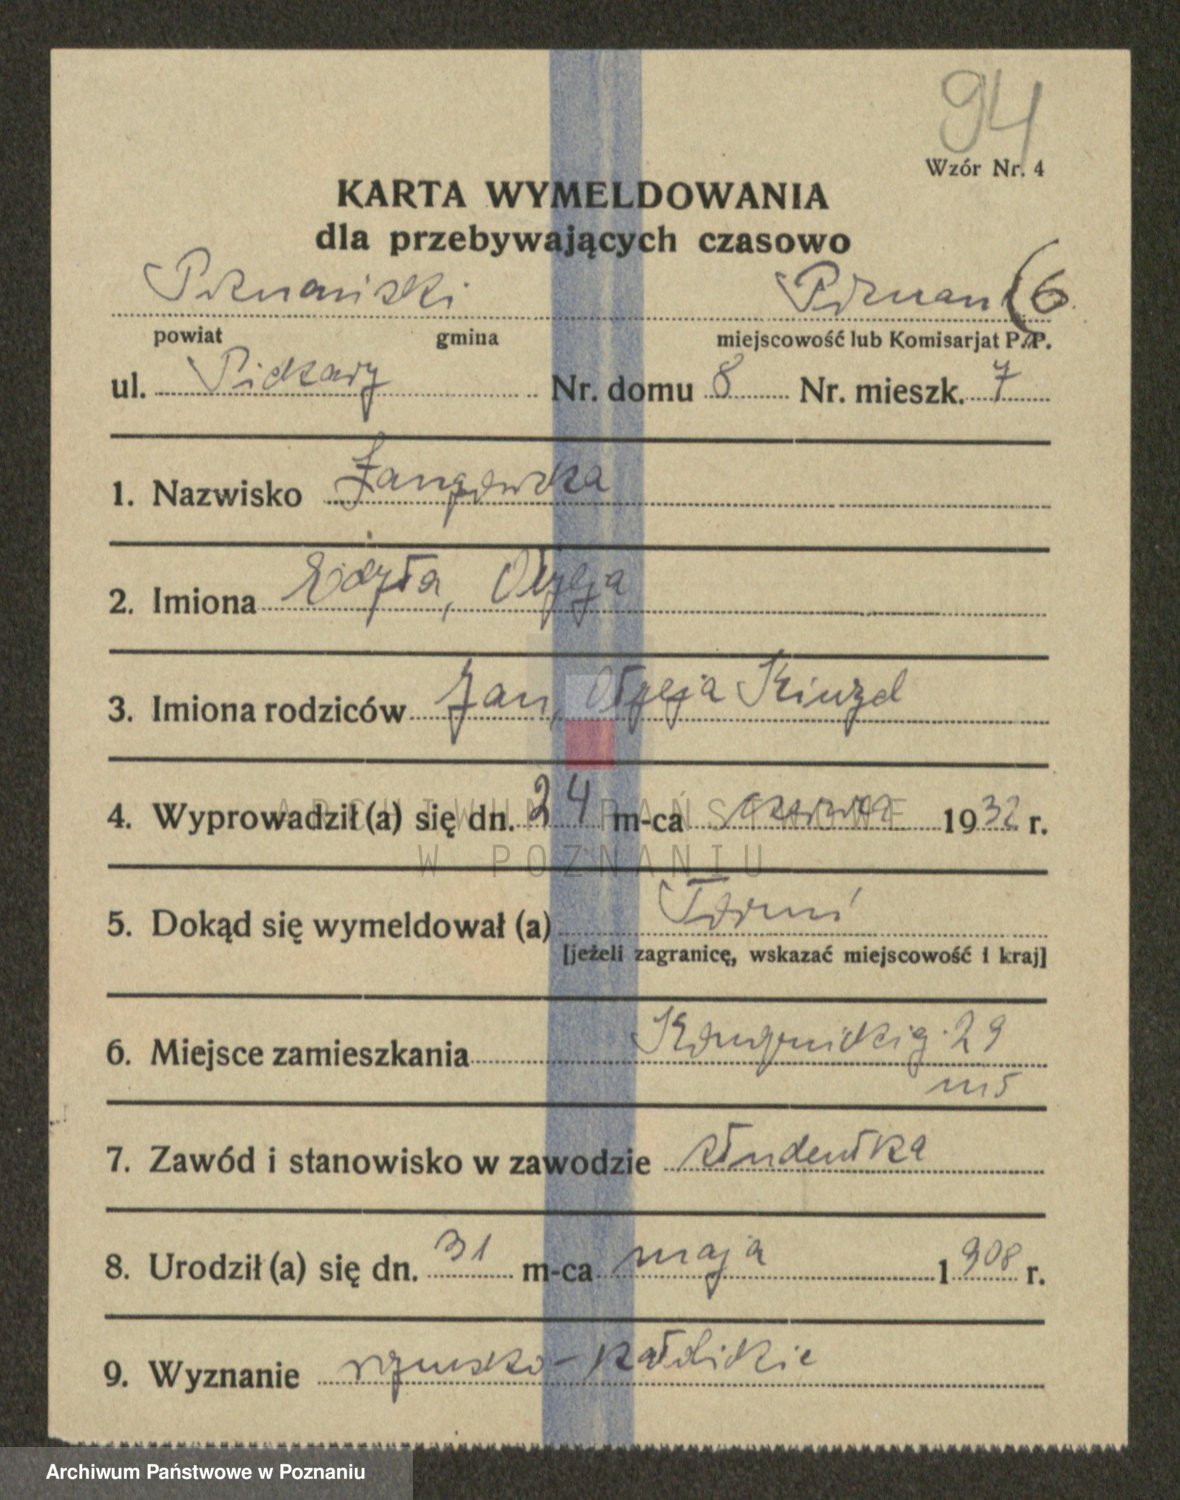 94
Wzór Nr. 4
KARTA WYMELDOWANIA
dla przebywających czasowo
Poznański Poznań (6
powiat gmina miejscowość lub Komisarjat P.P.
ul. Piekary Nr. domu 8 Nr. mieszk. 7
1. Nazwisko
2. Imiona
3. Imiona rodziców Jan,
4. Wyprowadził (a) się dn. 24 m-ca czerwca 1932 r.
ARCHIWUM PAŃSTWOWE
W POZNANIU
5. Dokąd się wymeldował (a) Toruń
[jeżeli zagranicę, wskazać miejscowość i kraj]
6. Miejsce zamieszkania 29
m 5
7. Zawód i stanowisko w zawodzie studentka
8. Urodził (a) się dn. 31 m-ca maja 1908 r.
9. Wyznanie rzymsko-katolickie
Archiwum Państwowe w Poznaniu